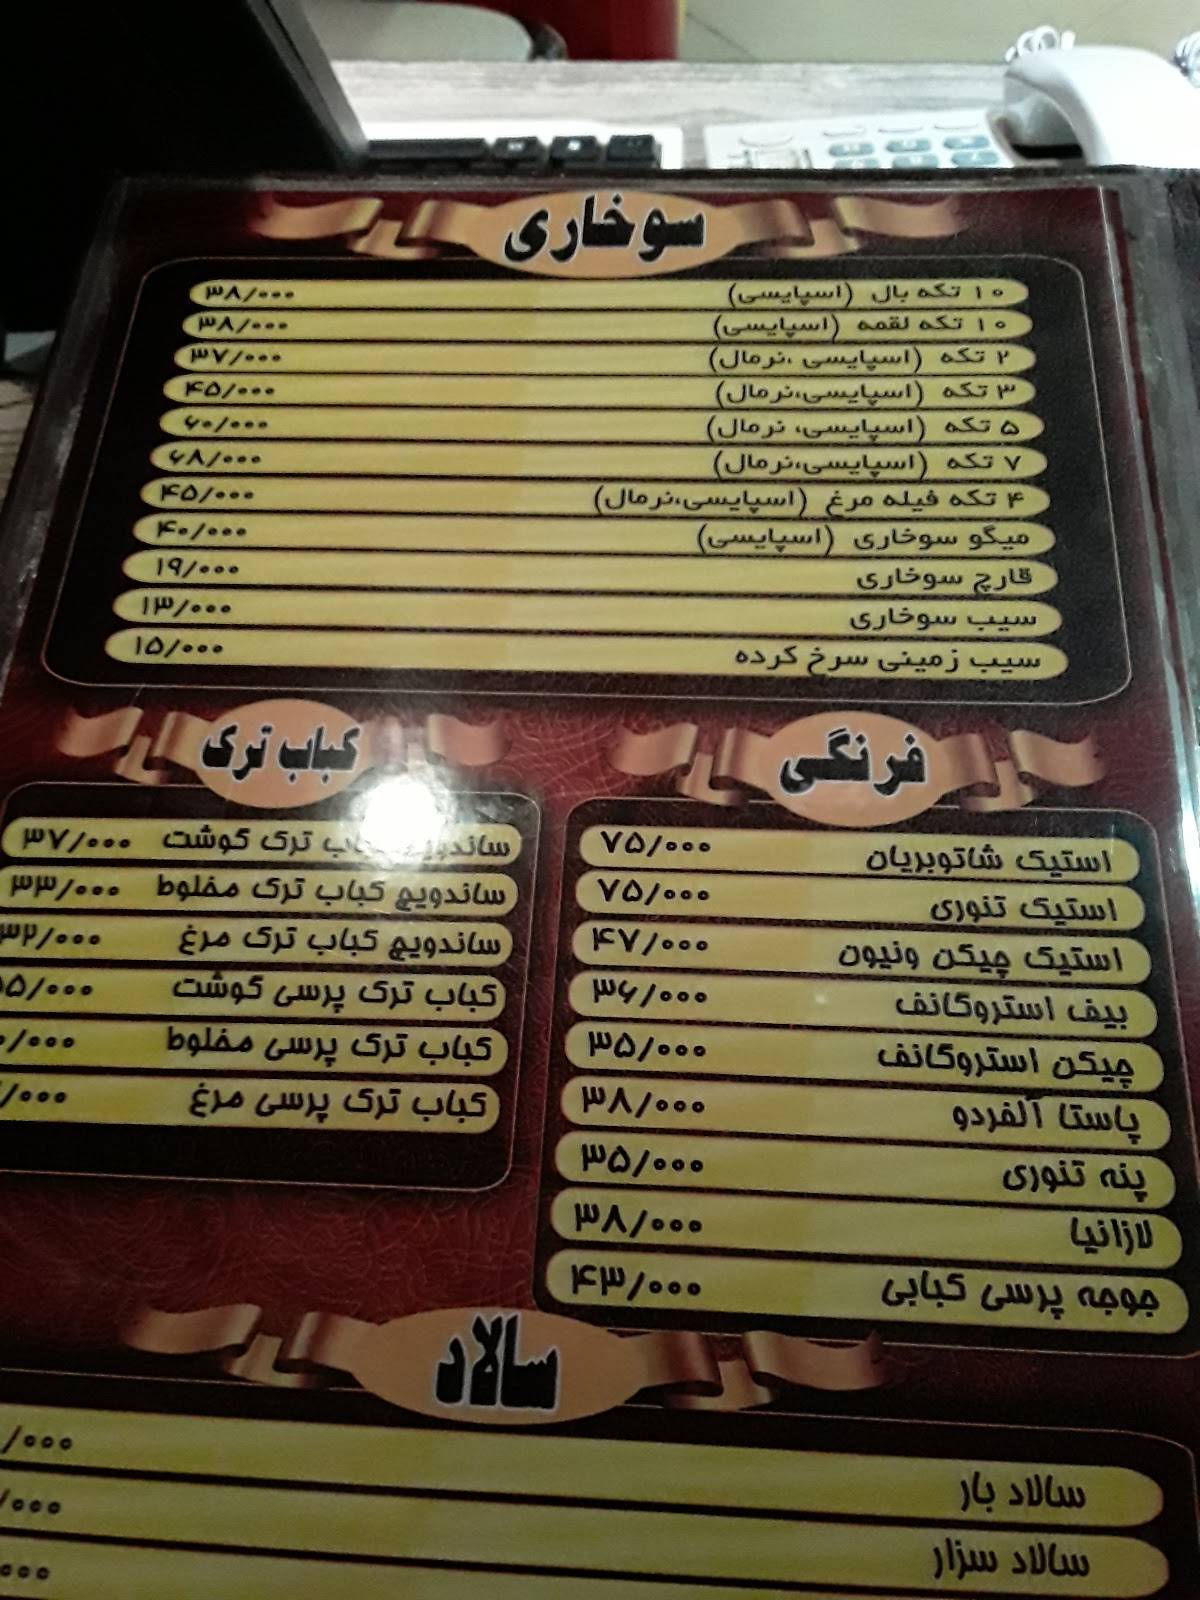 سوخاری
۱۰ تکه بال (اسپایسی) ۳۸/۰۰۰
۱۰ تکه لقمه (اسپایسی) ۳۸/۰۰۰
۲ تکه (اسپایسی ،نرمال) ۳۷/۰۰۰
۳ تکه (اسپایسی،نرمال) ۴۵/۰۰۰
۵ تکه (اسپایسی، نرمال) ۶۰/۰۰۰
۷ تکه (اسپایسی،نرمال) ۶۸/۰۰۰
۴ تکه فیله مرغ (اسپایسی،نرمال) ۴۵/۰۰۰
میگو سوخاری (اسپایسی) ۴۰/۰۰۰
قارچ سوخاری ۱۹/۰۰۰
سیب سوخاری ۱۳/۰۰۰
سیب زمینی سرخ کرده ۱۵/۰۰۰
فرنگی
استیک شاتوبریان ۷۵/۰۰۰
استیک تنوری ۷۵/۰۰۰
استیک چیکن ونیون ۴۷/۰۰۰
بیف استروگانف ۳۶/۰۰۰
چیکن استروگانف ۳۵/۰۰۰
پاستا آلفردو ۳۸/۰۰۰
پنه تنوری ۳۵/۰۰۰
لازانیا ۳۸/۰۰۰
جوجه پرسی کبابی ۴۳/۰۰۰
کباب ترک
ساندویچ کباب ترک گوشت ۳۷/۰۰۰
ساندویچ کباب ترک مخلوط ۳۳/۰۰۰
ساندویچ کباب ترک مرغ ۳۲/۰۰۰
کباب ترک پرسی گوشت
کباب ترک پرسی مخلوط
کباب ترک پرسی مرغ
سالاد
سالاد بار
سالاد سزار